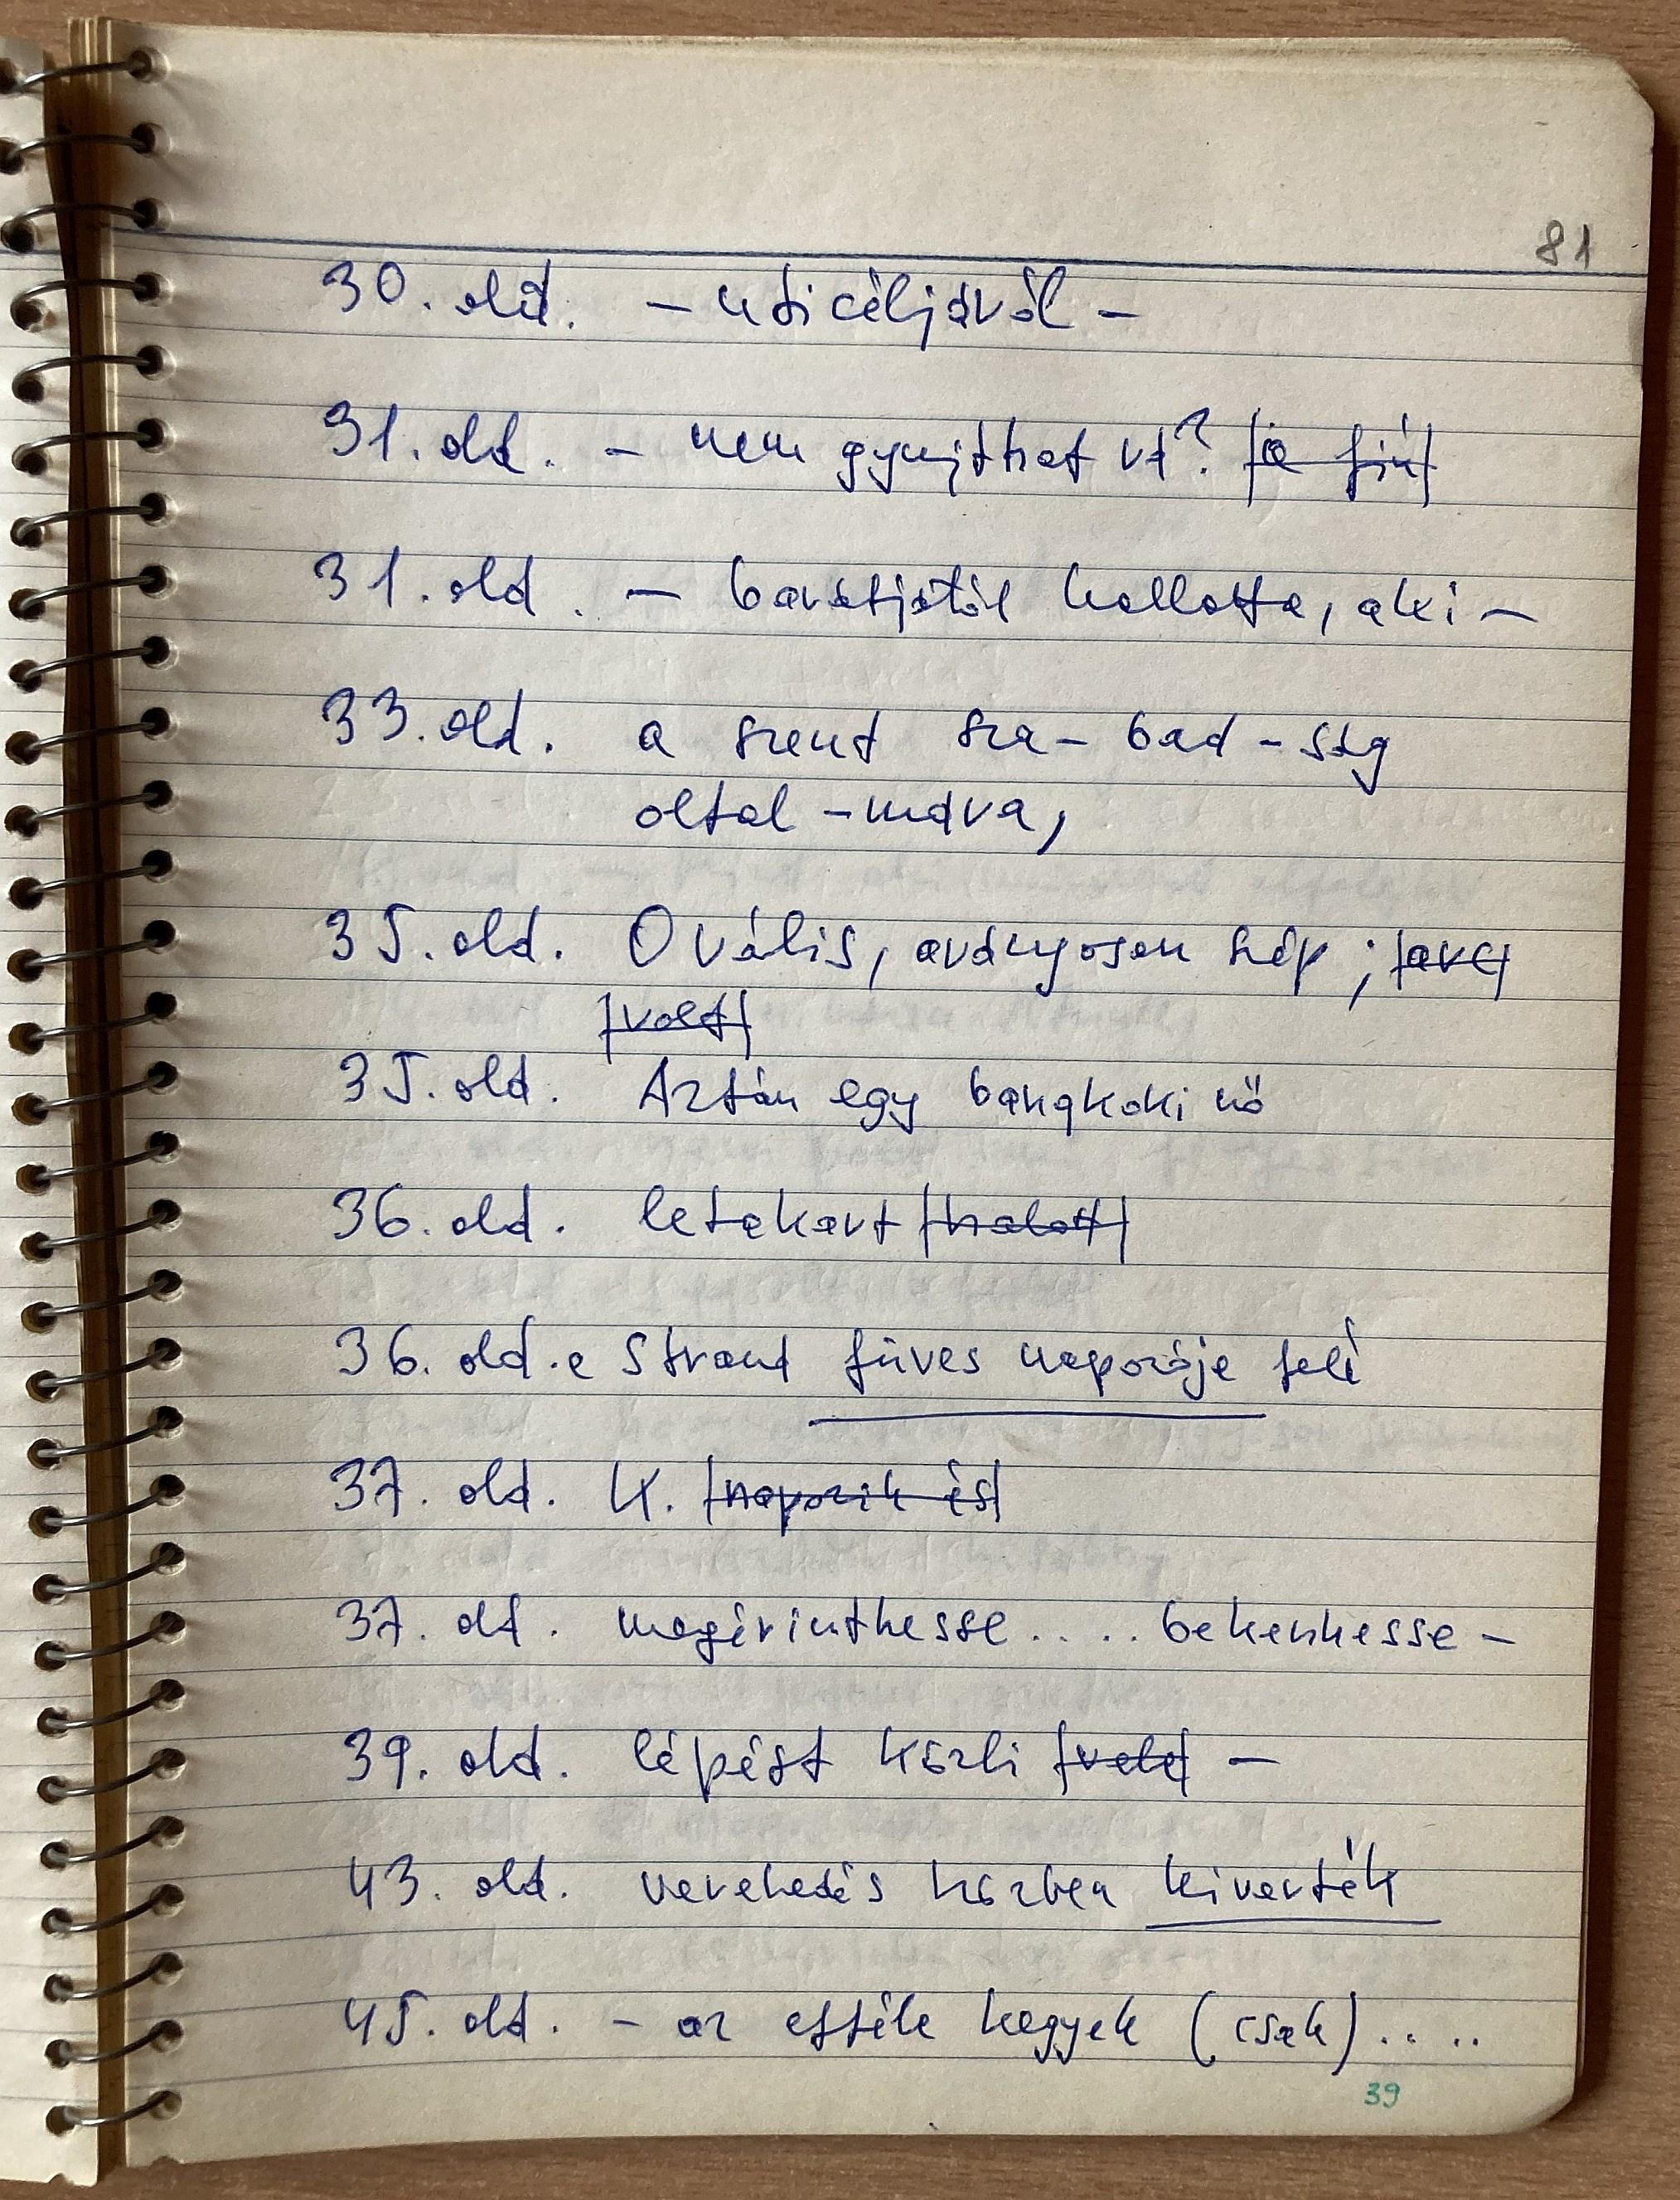 81
30. old. – uticéljáról –
31. old. – nem gyujthat rá? |a fiú|
31. old. – barátjától hallotta, aki –
33. old. a szent sza- bad - ság
oltal - mára,
35. old. Ovális, arányosan szép; |arc|
|volt|
35. old. Aztán egy bangkoki nő
36. old. letakart |halott|
36. old. a Strand füves naposója felé
37. old. K. |napozik és|
37. old. megérinthesse.... bekenhesse –
39. old. lépést közli |vele| –
43. old. verekedés közben kiverték
45. old. – az efféle hegyek (csak).....
39